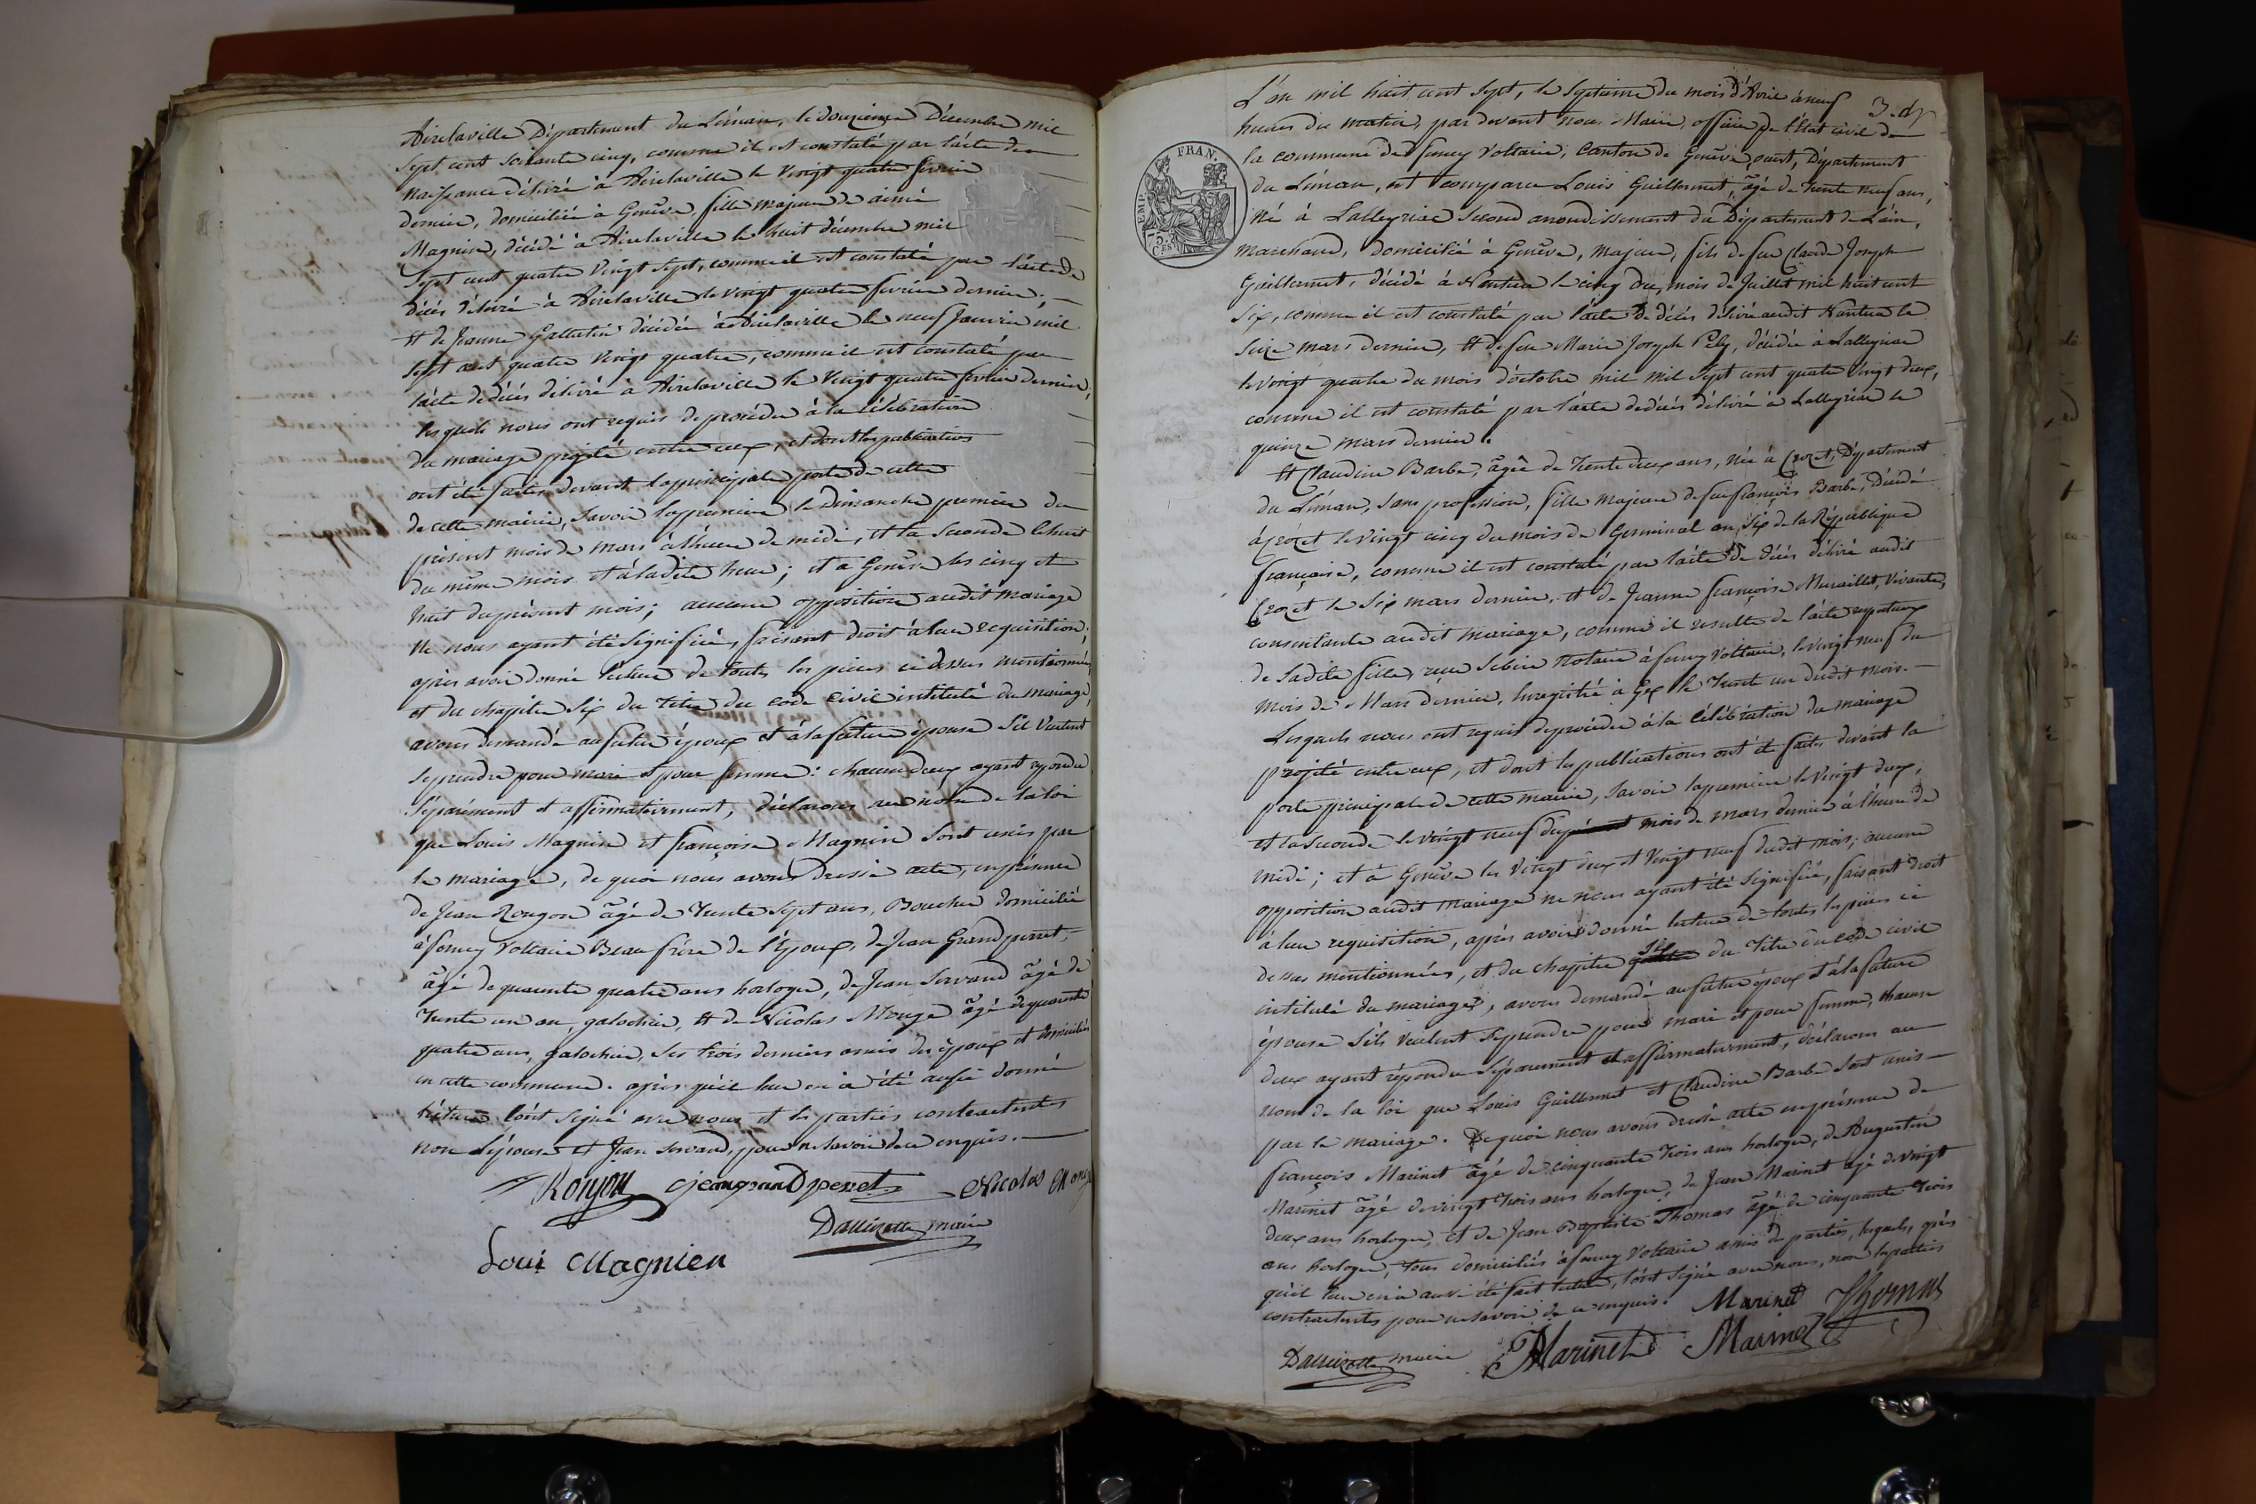 Airelaville Département du Léman, le douzieme Décembre mil
sept cent soixante cinq, comme il est constaté par l'acte de
Naissance délivré à Airelaville le vingt quatre fevrier
dernier, domiciliée à Genêve, fille majeure de aimé
Magnin, décédé à Airelaville le huit décembre mil
sept cent quatre vingt sept, comme il est constaté par l'acte de
décés délivré à Airelaville le vingt quatre fevrier dernier;
Et de Jeanne Gallatin décédée à Airelaville le neuf Janvier mil
sept cent quatre vingt quatre, comme il est constaté par
l'acte de décés délivré à Airelaville le vingt quatre fevrier dernier,
lesquels nous ont requis de procéder à la célébration
du mariage projeté entre eux, et dont les publications
ont été faites devant la principale porte de cette
de cette mairie, Savoir la premiere le Dimanche premier du
présent mois de mars à l'heure de midi, et la seconde le huit
du même mois et à ladite heure; et à Genêve les cinq et
huit du présent mois; aucune opposition audit mariage
ne nous ayant été signifiée, faisant droit à leur requisition;
après avoir donné lecture de toutes les pieces ci dessus mentionnées
et du chapitre Six du titre du code civil intitulé du mariage,
avons demandé au futur époux et à la future épouse s'il veulent
se prendre pour mari et pour femme: chacun deux ayant repondu
séparément et affirmativement, déclarons au nom de la loi
que Louis Magnin et françoise Magnin sont unis par
le mariage, de quoi nous avons dressé acte, en présence
de Jean Rongon âgé de trente sept ans, Boucher domicilié
à ferney Voltaire Beau frère de l'époux, de Jean Grandperret,
âgé de quarente quatre ans horloger, de Jean Servand âgé de
trente un an, galochier, Et de Nicolas Monge âgé de quarente
quatre ans, galochier, les trois derniers amis des époux et domiciliés
en cette commune. après qu'il leur en a été aussi donné
lecture l'ont signé avec nous et les parties contractantes
non l'épouse et Jean Servand, pour ne savoir de ce enquis.
Ronjon jean grand perret Nicolas Monge
Dallizette maire
Loui Magnien
3. d
L'an mil huit cent sept, le septieme du mois d'Avril à neuf
heures du matin, par devant nous Maire, officier de l'état civil de
la commune de ferney Voltaire, Canton de Genêve, ouest, Département
du Léman, est comparu Louis Guillermet, âgé de trente neuf ans,
Né à Lalleyriat second arrondissement du Département de L'ain,
marchand, domicilié à Genêve, majeur, fils de feu Claude Joseph
Guillermet, décédé à Nantua le cinq du mois de Juillet mil huit cent
six, comme il est constaté par l'acte de décés délivré audit Nantua le
seize mars dernier, Et de feu Marie Joseph Pely, décédée à Lalleyriat
le vingt quatre du mois d'octobre mil mil sept cent quatre vingt deux,
comme il est constaté par l'acte de décés délivré à Lalleyriat le
quinze mars dernier.
Et Claudine Barbe, âgée de trente deux ans, née à Crozet, Département
du Léman, sans profession, fille majeure de feu françois Barbe, décédé
à Crozet le vingt cinq du mois de Germinal an Six de la République
française, comme il est constaté par l'acte de décés délivré audit
Crozet le six mars dernier, et de Jeanne françoise Muraillet, vivante,
consentante audit mariage, comme il resulte de l'acte
de ladite fille, reçu notaire à ferney Voltaire, le vingt neuf du
mois de Mars dernier, Enregistré à Gex le trente un dudit mois.
Lesquels nous ont requis de procéder à la célébration du mariage
projeté entre eux, et dont les publications ont été faites devant la
porte principale de cette mairie, savoir la premiere le vingt deux,
et la seconde le vingt neuf du présent mois de mars dernier à l'heure de
midi; et à Genêve les vingt deux et vingt neuf dudit mois; aucune
opposition audit mariage ne nous ayant été signifiée, faisant droit
à leur requisition, après avoir donné lecture de toutes les pieces ci
dessus mentionnées, et du chapitre Six du titre du code civil
intitulé du mariage, avons demandé au futur époux et à la future
épouse s'ils veulent se prendre pour mari et pour femme, chacun
deux ayant répondu séparement et affirmativement, déclarons au
nom de la loi que Louis Guillermet et Claudine Barbe sont unis
par le mariage. De quoi nous avons dressé acte en présence de
françois Marinet âgé de cinquante trois ans horloger, de Augustin
Marinet âgé de vingt trois ans horloger, de Jean Marinet âgé de vingt
deux ans horloger, et de Jean Baptiste Thomas âgé de cinquante trois
ans horloger, tous domiciliés à ferney Voltaire amis de parties, lesquels, après
qu'il leur en a aussi été fait lecture, l'ont signé avec nous, non les parties
contractantes pour ne savoir de ce enquis. Marinet Thomas
Dallizette maire Marinet Marinet
FRAN.
TEMP.